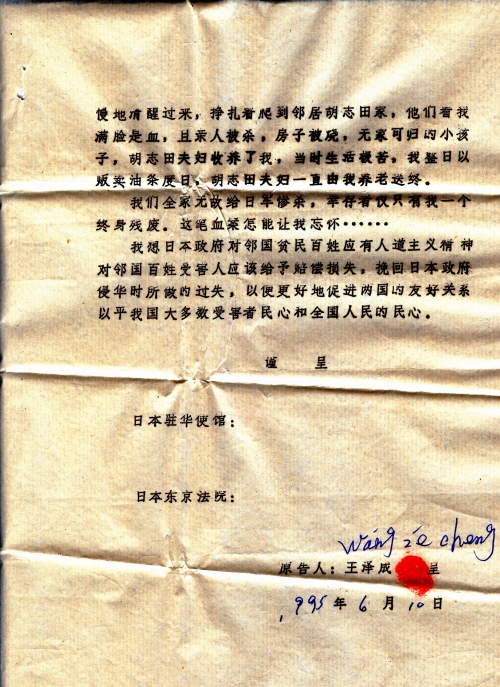 慢地清醒过来，挣扎着爬到邻居胡志田家，他们看我
满脸是血，且亲人被杀，房子被烧，无家可归的小孩
子，胡志田夫妇收养了我，当时生活极苦，我整日以
贩卖油条度日，胡志田夫妇一直由我养老送终。
我们全家无故给日军惨杀，幸存者仅只有我一个
终身残废。这笔血案怎能让我忘怀……
我想日本政府对邻国贫民百姓应有人道主义精神
对邻国百姓受害人应该给予赔偿损失，挽回日本政府
侵华时所做的过失，以便更好地促进两国的友好关系
以平我国大多数受害者民心和全国人民的民心。
谨 呈
日本驻华使馆：
日本东京法院：
wáng zé chéng
原告人：王泽成 呈
1995年6月10日